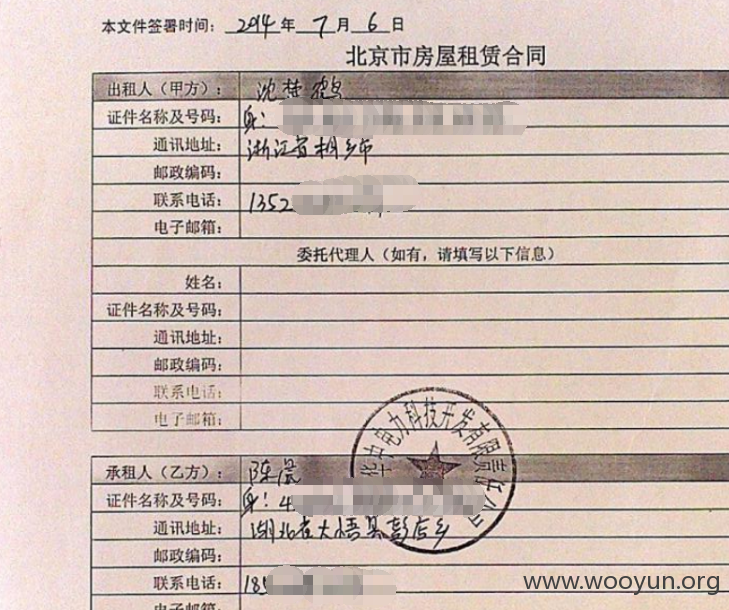 本文件签署时间: 2014 年 7 月 6 日
北京市房屋租赁合同
出租人(甲方): 沈
证件名称及号码: 身:
通讯地址: 浙江省桐乡市
邮政编码:
联系电话: 1352
电子邮箱:
委托代理人(如有,请填写以下信息)
姓名:
证件名称及号码:
通讯地址:
邮政编码:
联系电话:
电子邮箱:
电力科技开发有限责任公司
承租人(乙方): 陈
证件名称及号码: 身: 4
通讯地址: 湖北省大悟县彭店乡
邮政编码:
联系电话: 18
电子邮箱:
www.wooyun.org